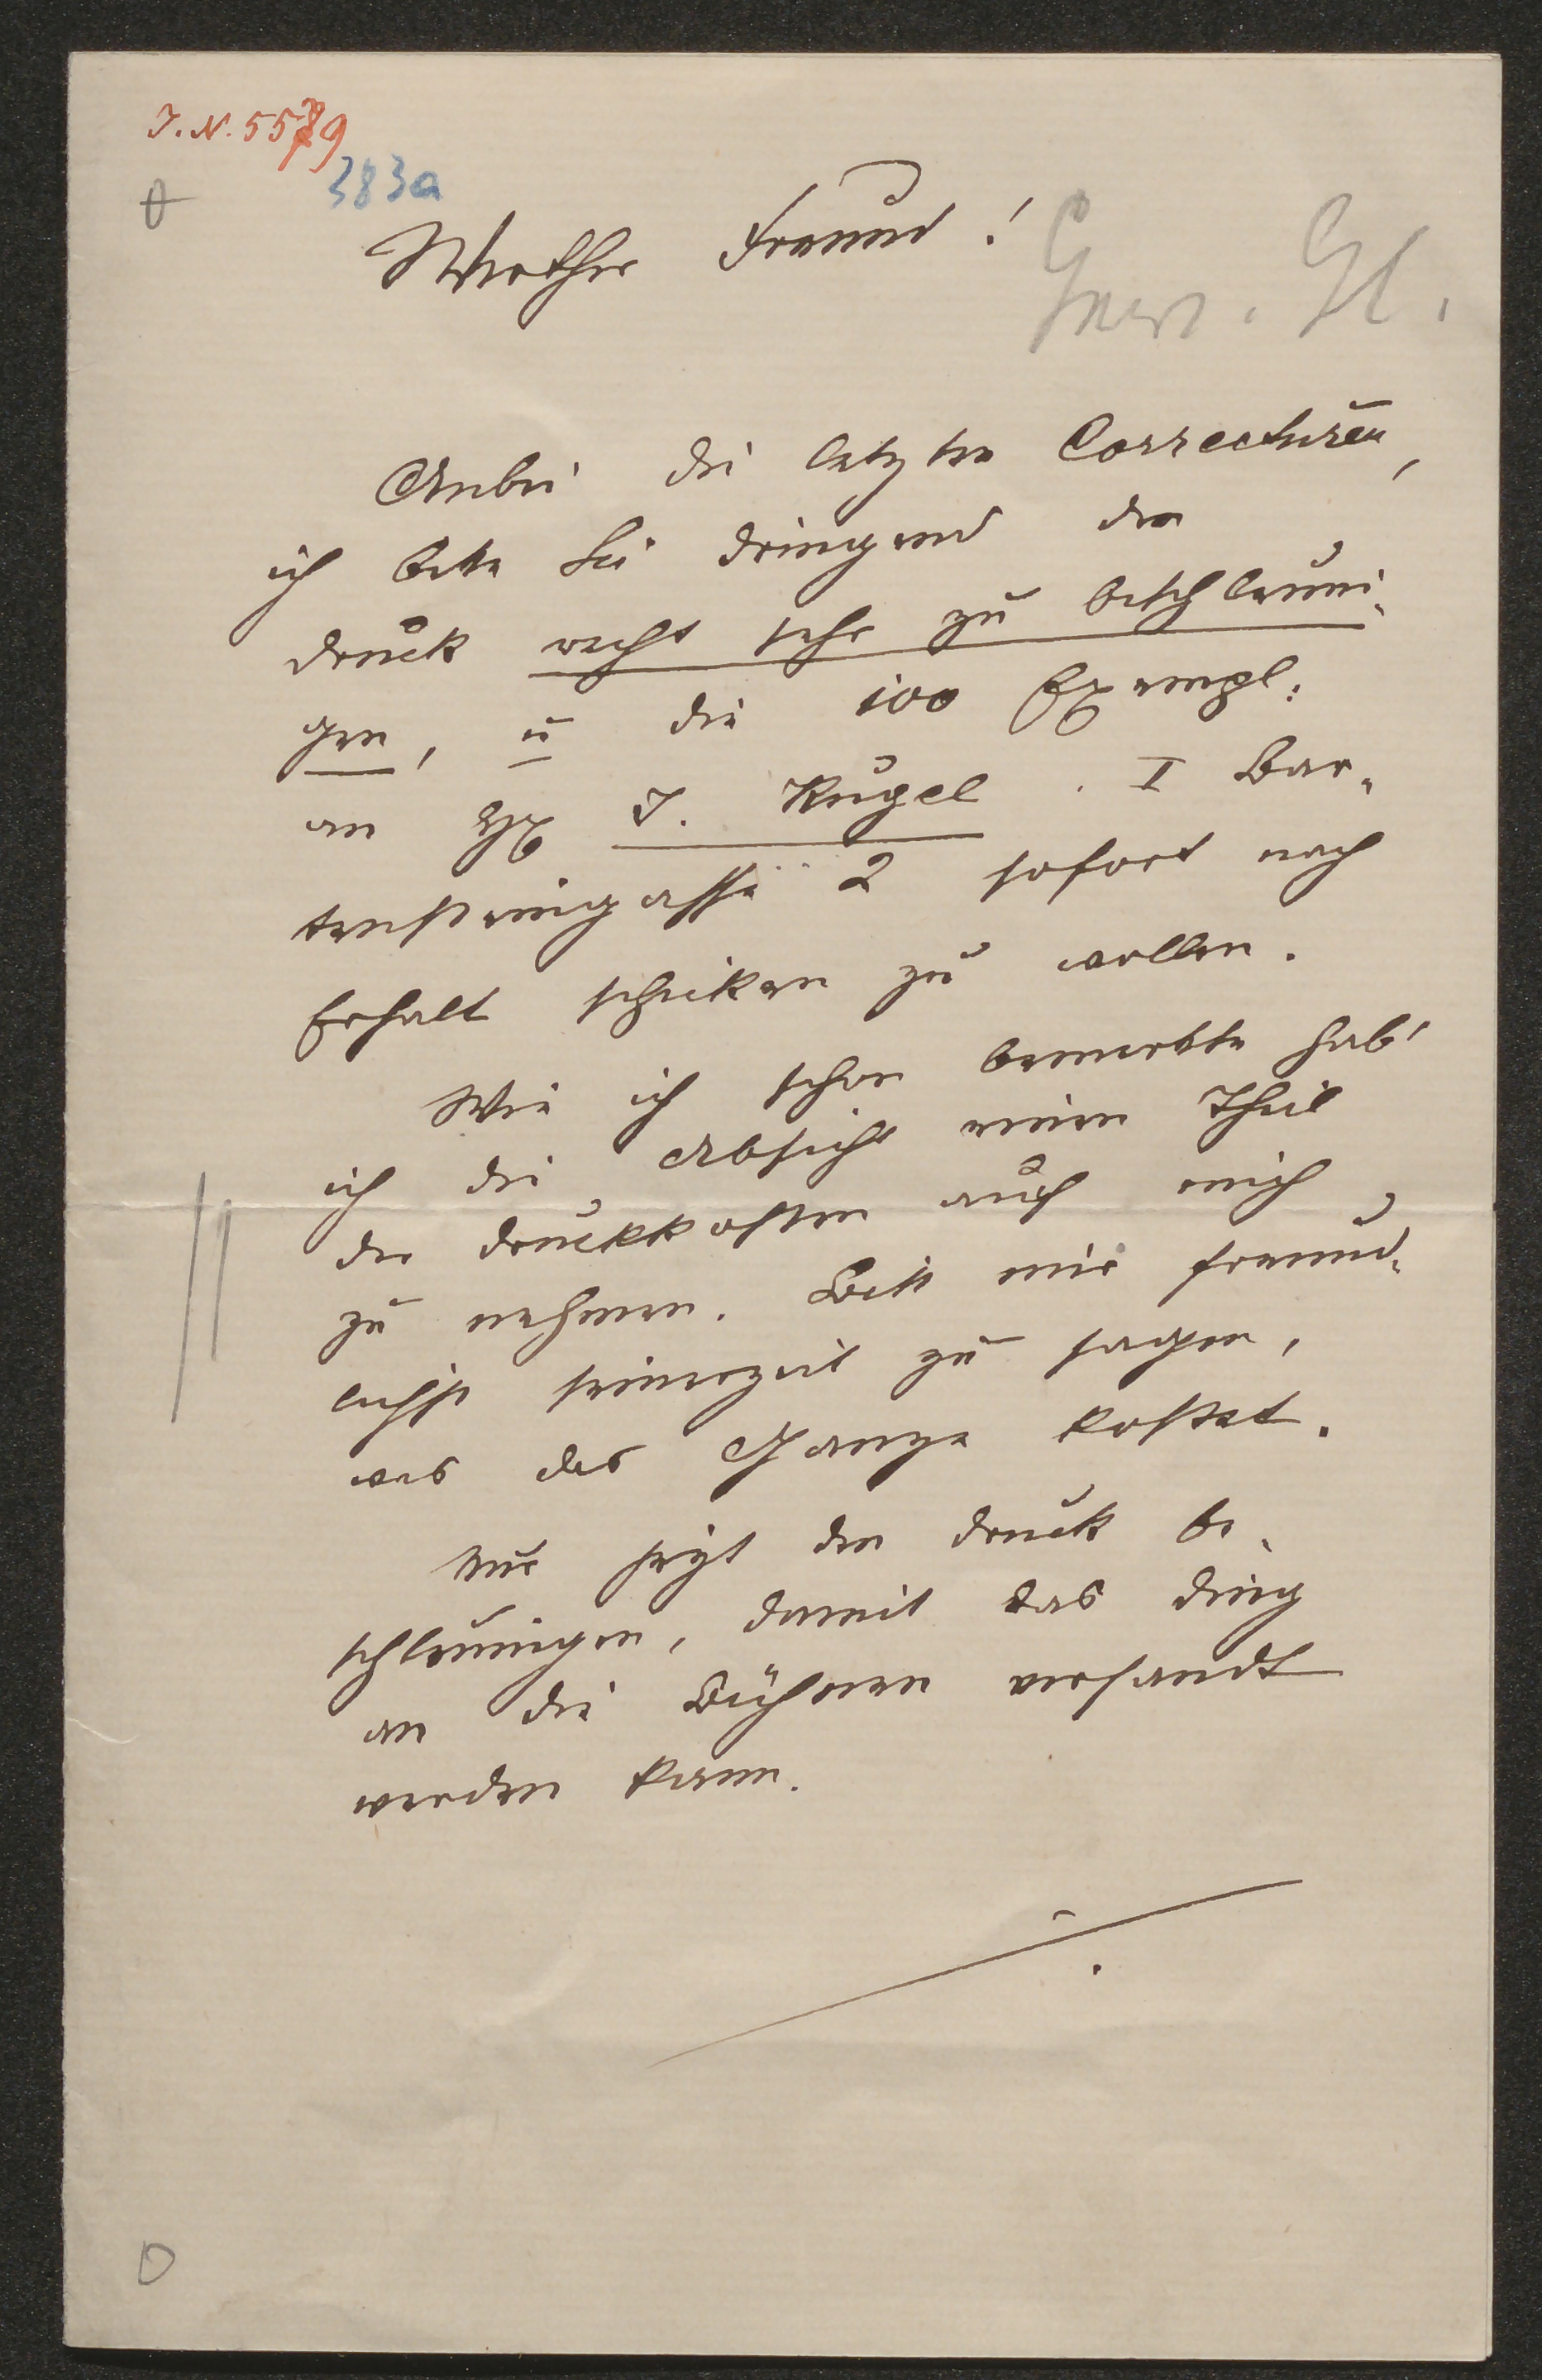 J. N. 5579
383a
Werther Freund!
Anbei die letzten Correcturen,
ich bitte Sie dringend den
Druck recht sehr zu beschleuni-
gen, u die 100 Exempl:
an H J. Kugel. I Bar-
tensteingasse 2 sofort nach
Erhalt schicken zu wollen.
Wie ich schon bemerkte hab'
ich die Absicht einen Theil
der Druckkosten auf mich
zu nehmen. Bitte mir freund-
lichst seinerzeit zu sagen,
was das Ganze kostet.
Nur jetzt den Druck be-
schleunigen, damit das Ding
an die Bühnen versandt
werden kann.